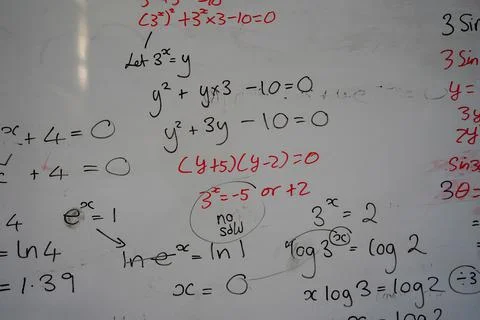 (3ˣ)² + 3ˣ×3-10=0
Let 3ˣ=y
y² + y×3 -10=0
y² + 3y -10=0
(y+5)(y-2)=0
3ˣ=-5 or +2
no
soln
3ˣ = 2
log3ˣ = log 2
x log3 = log2 ÷3
x + 4 = 0
+ 4 = 0
eˣ = 1
ln eˣ = ln 1
x = 0
4
= ln 4
= 1.39
3 Sin
3 Sin
y =
3y
2y
Sin
3θ =